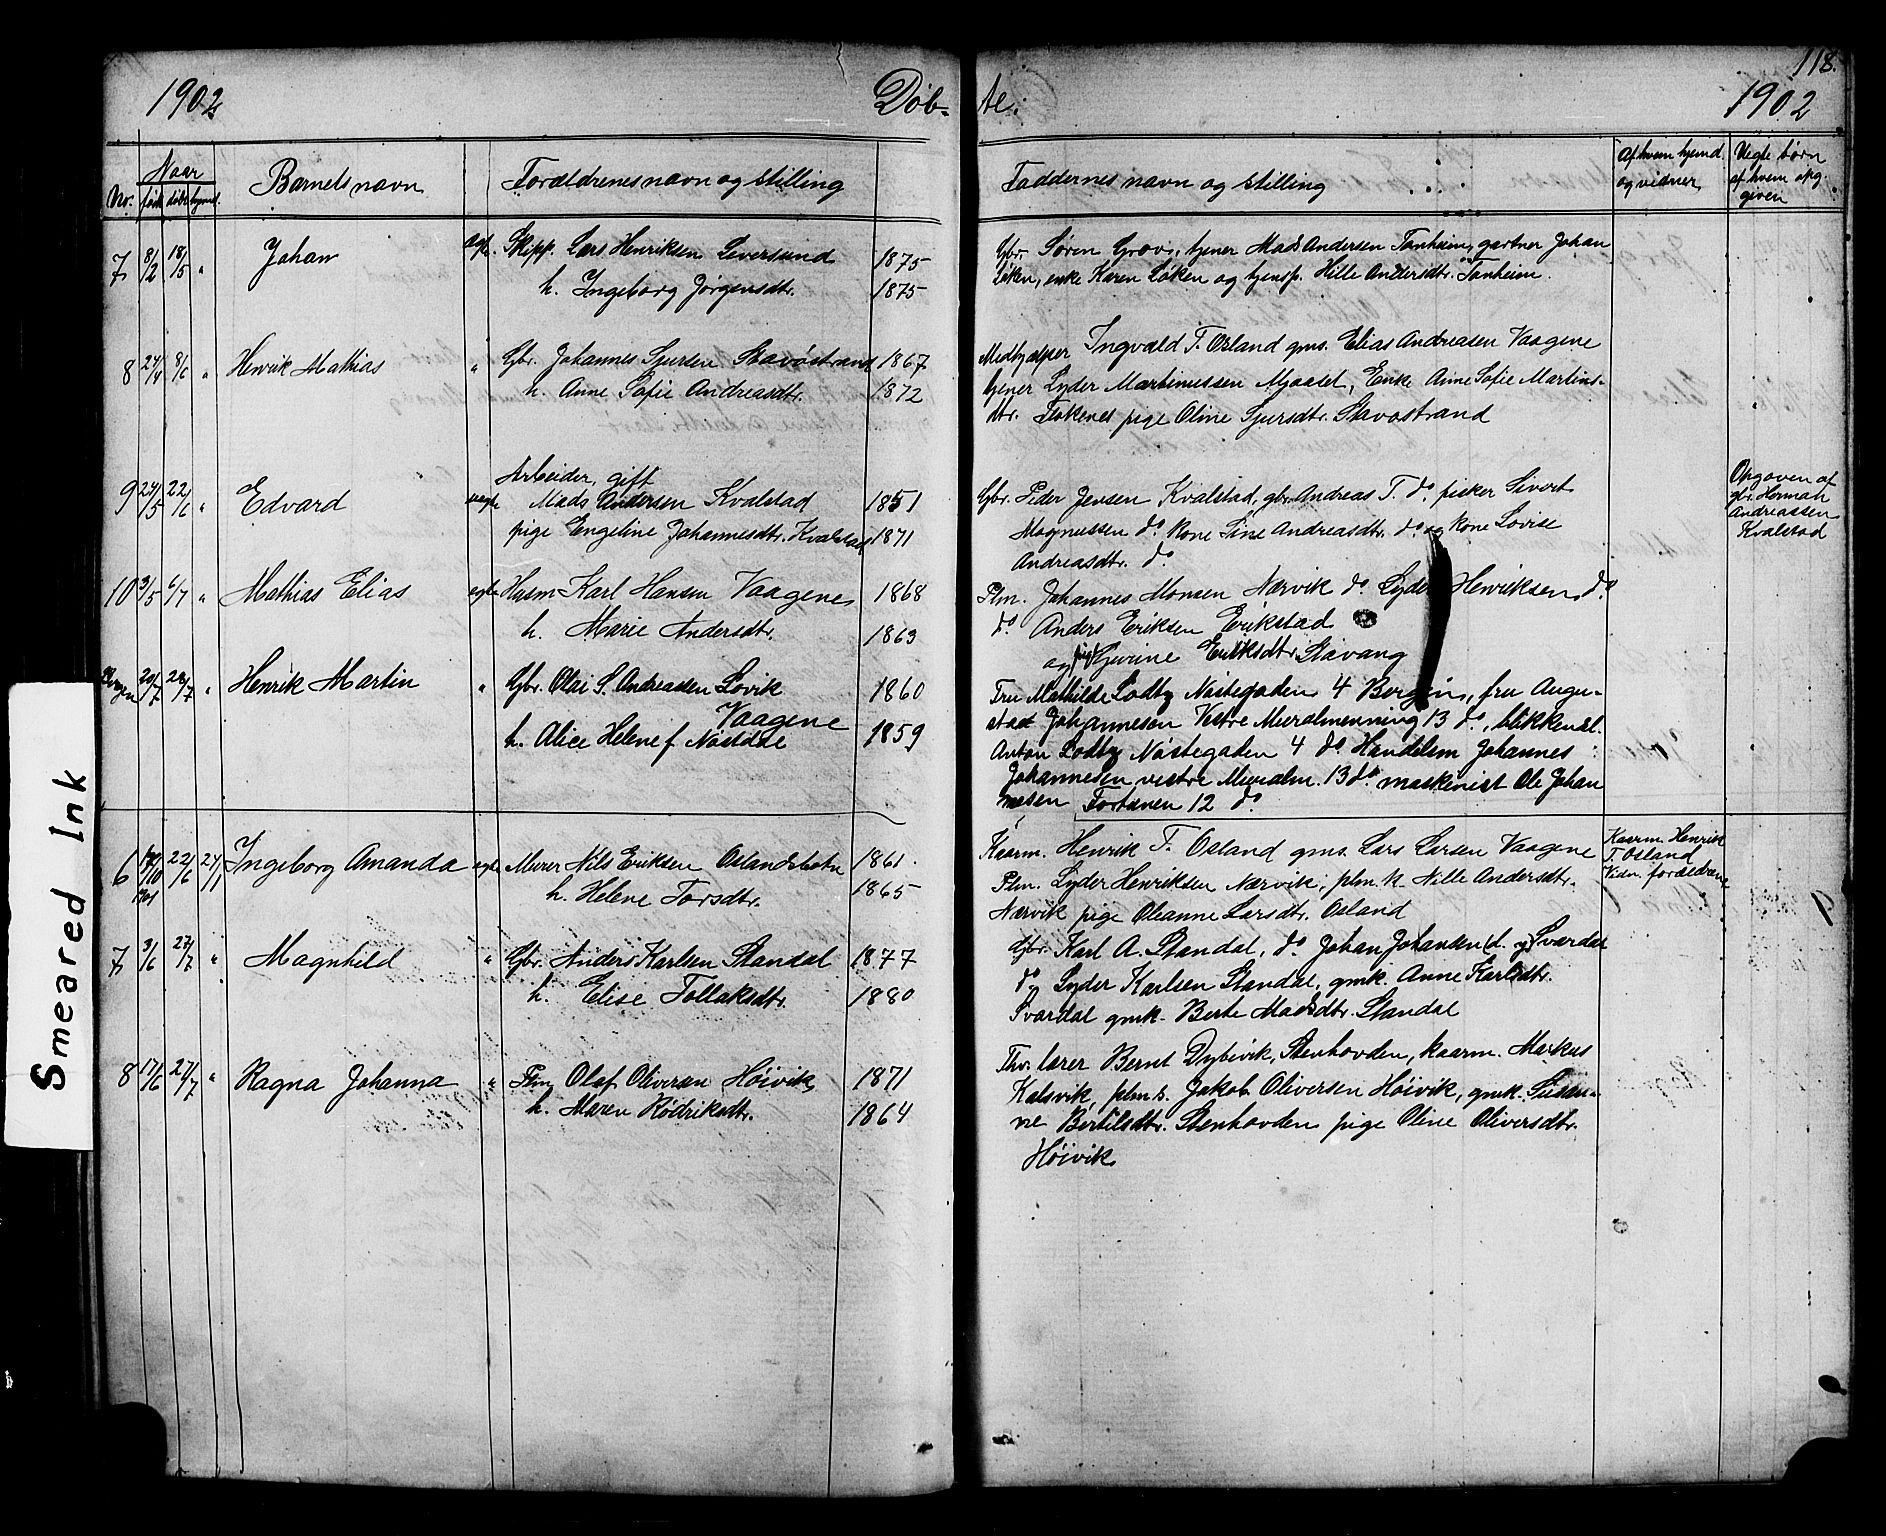 1902
Døb-
te.
118.
1902
Naar
Nr. født døbt hjemd.
Barnets navn
Forældrenes navn og stilling
Faddernes navn og stilling
Af hvem hjemd. og vidner
Uegte børn af hvem opgiven
7 8/2 18/5 " Johan egte. Skipp. Lars Henriksen Leversund 1875
h. Ingeborg Jørgensdtr. 1875
Gbr. Søren Grov, tjener Mads Andersen Tonheim, gartner Johan
Løken, enke Karen Løken og tjensp. Hille Andersdtr. Tonheim.
8 24/4 8/6 " Henrik Mathias " Gbr. Johannes Sjursen Stavøstrand 1867
h. Anne Sofie Andreasdtr. 1872
Medhjælper Ingvald T. Osland gms. Elias Andreasen Vaagene
tjener Lyder Martinussen Mjaatet, Enke Anne Sofie Martins-
dtr. Fiskenes pige Oline Sjursdtr. Stavøstrand
9 24/5 22/6 " Edvard uegte Arbeider, gift
Mads Andersen Kvalstad 1851
pige Engeline Johannesdtr. Kvalstad 1871
Gbr. Peder Jensen Kvalstad, gbr. Andreas T. do, fisker Sivert
Magnussen do. Kone Sine Andreasdtr. do. og kone Lovise
Andreasdtr. do.
Opgaven af
gbr. Herman
Andreassen
Kvalstad
10 3/5 6/7 " Mathias Elias egte Husm Karl Hansen Vaagene 1868
h. Marie Andersdtr. 1863
Plm. Johannes Monsen Nærvik do Lyder Henriksen do
do Anders Eriksen Erikstad
og pige Gjerine Eriksdtr. Stavang
Bergen 20/7 28/7 " Henrik Martin " Gbr. Olai S. Andreassen Løvik 1860
Vaagene
h. Alice Helene f Nøstdal 1859
Fru Mathilde Lodby Nøstegaden 4 Bergen, fru Augu-
sta Johannesen Vestre Muralmenning 13 do., blikkensl.
Anton Lodby Nøstegaden 4 do. Handelsm Johannes
Johannesen vestre Muralm. 13 do maskinist Ole Johan
nesen Fortunen 12 do
6 /10 1901 22/6 24/11 Ingeborg Amanda egte Murer Nils Eriksen Oslandsbotn 1861.
h. Helene Torsdtr. 1865
Kaarm. Henrik T. Osland gms. Lars Larsen Vaagene
Plm. Lyder Henriksen Nærvik, plm. k. Nille Andersdtr.
Nærvik pige Oleanne Larsdtr. Osland
Kaarm. Henrik
T. Osland
Vidn. forældrene
7 3/6 27/7 " Magnhild " Gbr. Anders Karlsen Standal 1877
h. Elise Tollaksdtr. 1880
Gbr. Karl A. Standal, do. Johan Johansen Svardal
do Lyder Karlsen Standal, gmk. Anne Karlsdtr.
Svardal gmk. Berte Madsdtr. Standal
8 17/6 27/7 " Ragna Johanna " Plm Olaf Oliversen Høivik 1871
h. Maren Rødriksdtr. 1864
Thv. lærer Bernt Dybevik, Stenhovden, kaarm. Markus
Kalsvik, plm. s. Jakob Oliversen Høivik, gmk. Susan-
ne Bertilsdtr. Stenhovden pige Oline Oliversdtr.
Høivik
Smeared Ink